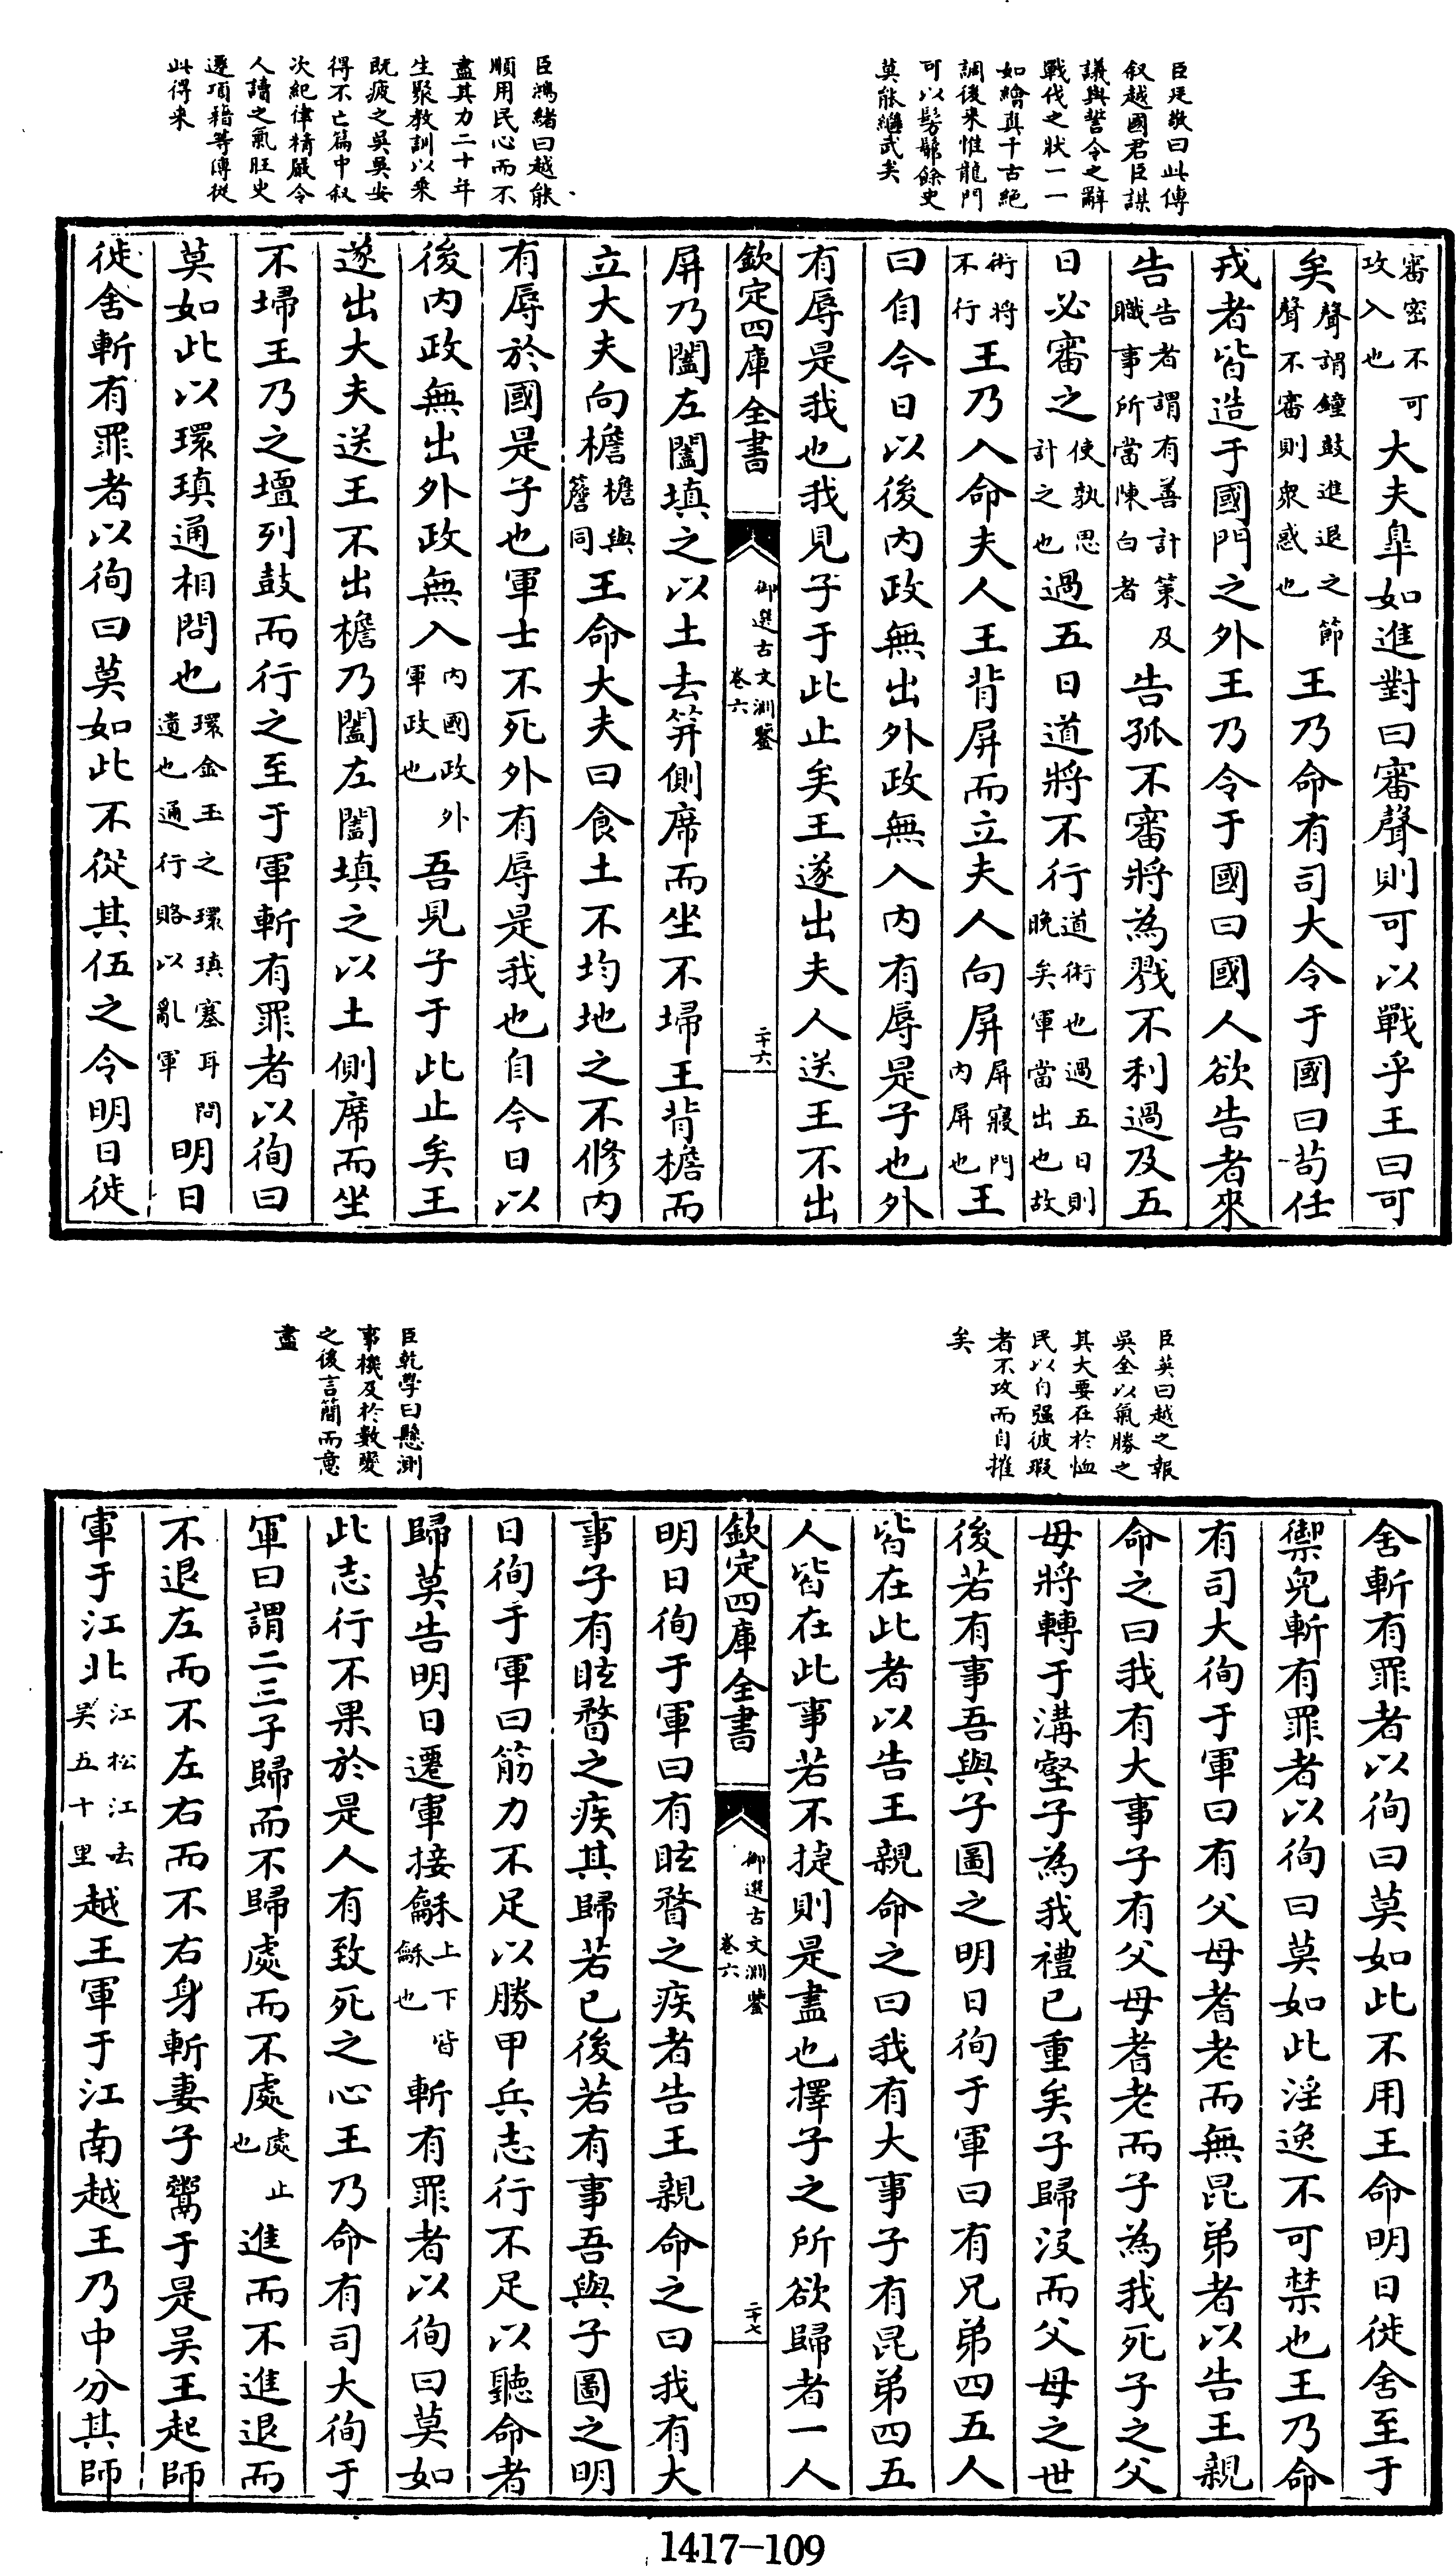 臣廷敬曰此傳
叙越國君臣謀
議與誓令之辭
戰伐之狀一一
如繪真千古絕
調後來惟龍門
可以髣髴餘史
莫能繼武矣
臣鴻緒曰越能
順用民心而不
盡其力二十年
生聚教訓以乘
既疲之吳吳安
得不亡篇中叙
次紀律精嚴令
人讀之氣旺史
遷項籍等傳從
此得来
審密不可
攻入也
大夫臯如進對曰審聲則可以戰乎王曰可
矣聲謂鐘鼓進退之節
聲不審則衆惑也
王乃命有司大令于國曰苟任
戎者皆造于國門之外王乃令于國曰國人欲告者來
告告者謂有善計策及
職事所當陳白者
告孤不審將為戮不利過及五
日必審之使孰思
計之也
過五日道將不行道術也過五日則
晚矣軍當出也故
術將
不行
王乃入命夫人王背屏而立夫人向屏屏寢門
内屏也
王
曰自今日以後内政無出外政無入内有辱是子也外
有辱是我也我見子于此止矣王遂出夫人送王不出
欽定四庫全書
御選古文淵鑒
卷六
二十六
屏乃闔左闔填之以土去笄側席而坐不埽王背檐而
立大夫向檐檐與
簷同
王命大夫曰食土不均地之不修内
有辱於國是子也軍士不死外有辱是我也自今日以
後内政無出外政無入内國政外
軍政也
吾見子于此止矣王
遂出大夫送王不出檐乃闔左闔填之以土側席而坐
不埽王乃之壇列鼓而行之至于軍斬有罪者以徇曰
莫如此以環瑱通相問也環金玉之環瑱塞耳問
遺也通行賂以亂軍
明日
徙舍斬有罪者以徇曰莫如此不從其伍之令明日徙
臣英曰越之報
吳全以氣勝之
其大要在於恤
民以自强彼瑕
者不攻而自摧
矣
臣乾學曰懸測
事機及於數變
之後言簡而意
盡
舍斬有罪者以徇曰莫如此不用王命明日徙舍至于
禦兒斬有罪者以徇曰莫如此淫逸不可禁也王乃命
有司大徇于軍曰有父母耆老而無昆弟者以告王親
命之曰我有大事子有父母耆老而子為我死子之父
母將轉于溝壑子為我禮已重矣子歸没而父母之世
後若有事吾與子圖之明日徇于軍曰有兄弟四五人
皆在此者以告王親命之曰我有大事子有昆弟四五
人皆在此事若不捷則是盡也擇子之所欲歸者一人
欽定四庫全書
御選古文淵鑒
卷六
二十七
明日徇于軍曰有眩瞀之疾者告王親命之曰我有大
事子有眩瞀之疾其歸若已後若有事吾與子圖之明
日徇于軍曰筋力不足以勝甲兵志行不足以聽命者
歸莫告明日遷軍接龢上下皆
龢也
斬有罪者以徇曰莫如
此志行不果於是人有致死之心王乃命有司大徇于
軍曰謂二三子歸而不歸處而不處處止
也
進而不進退而
不退左而不左右而不右身斬妻子鬻于是吳王起師
軍于江北江松江去
吳五十里
越王軍于江南越王乃中分其師
1417-109